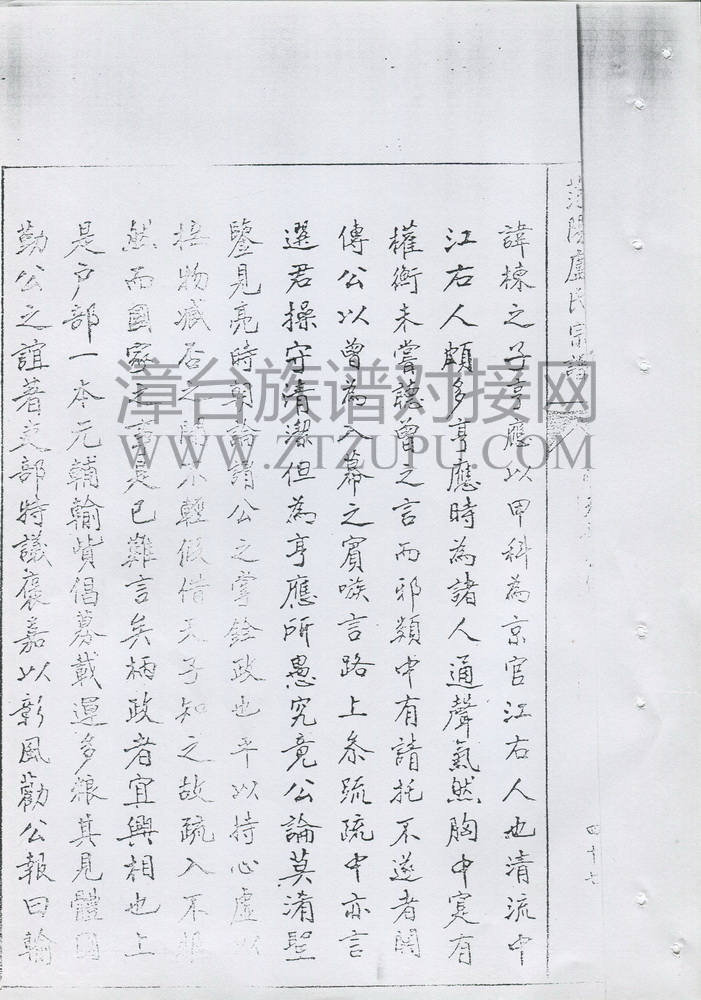 范陽盧氏宗譜
四十七
諱棟之子亨應以甲科為京官江右人也清流中
江右人頗多亨應時為諸人通聲氣然胸中寔有
權衡未嘗聽曾之言而邪類中有請托不遂者開
傳公以曾為入幕之賓嗾言路上叅疏疏中亦言
選君操守清潔但為亨應所愚究竟公論莫淆聖
鑒見亮時朝論謂公之掌銓政也平以持心虛以
接物臧否之間不輕假借天子知之故疏入不報
然而國家之事是已難言矣柄政者宜興相也上
是戶部一本元輔輸貲倡募載運多糧其見體國
勤公之誼著吏部特議褒嘉以彰風勸公報曰輸
漳台族谱对接网
WWW.ZTZUPU.COM